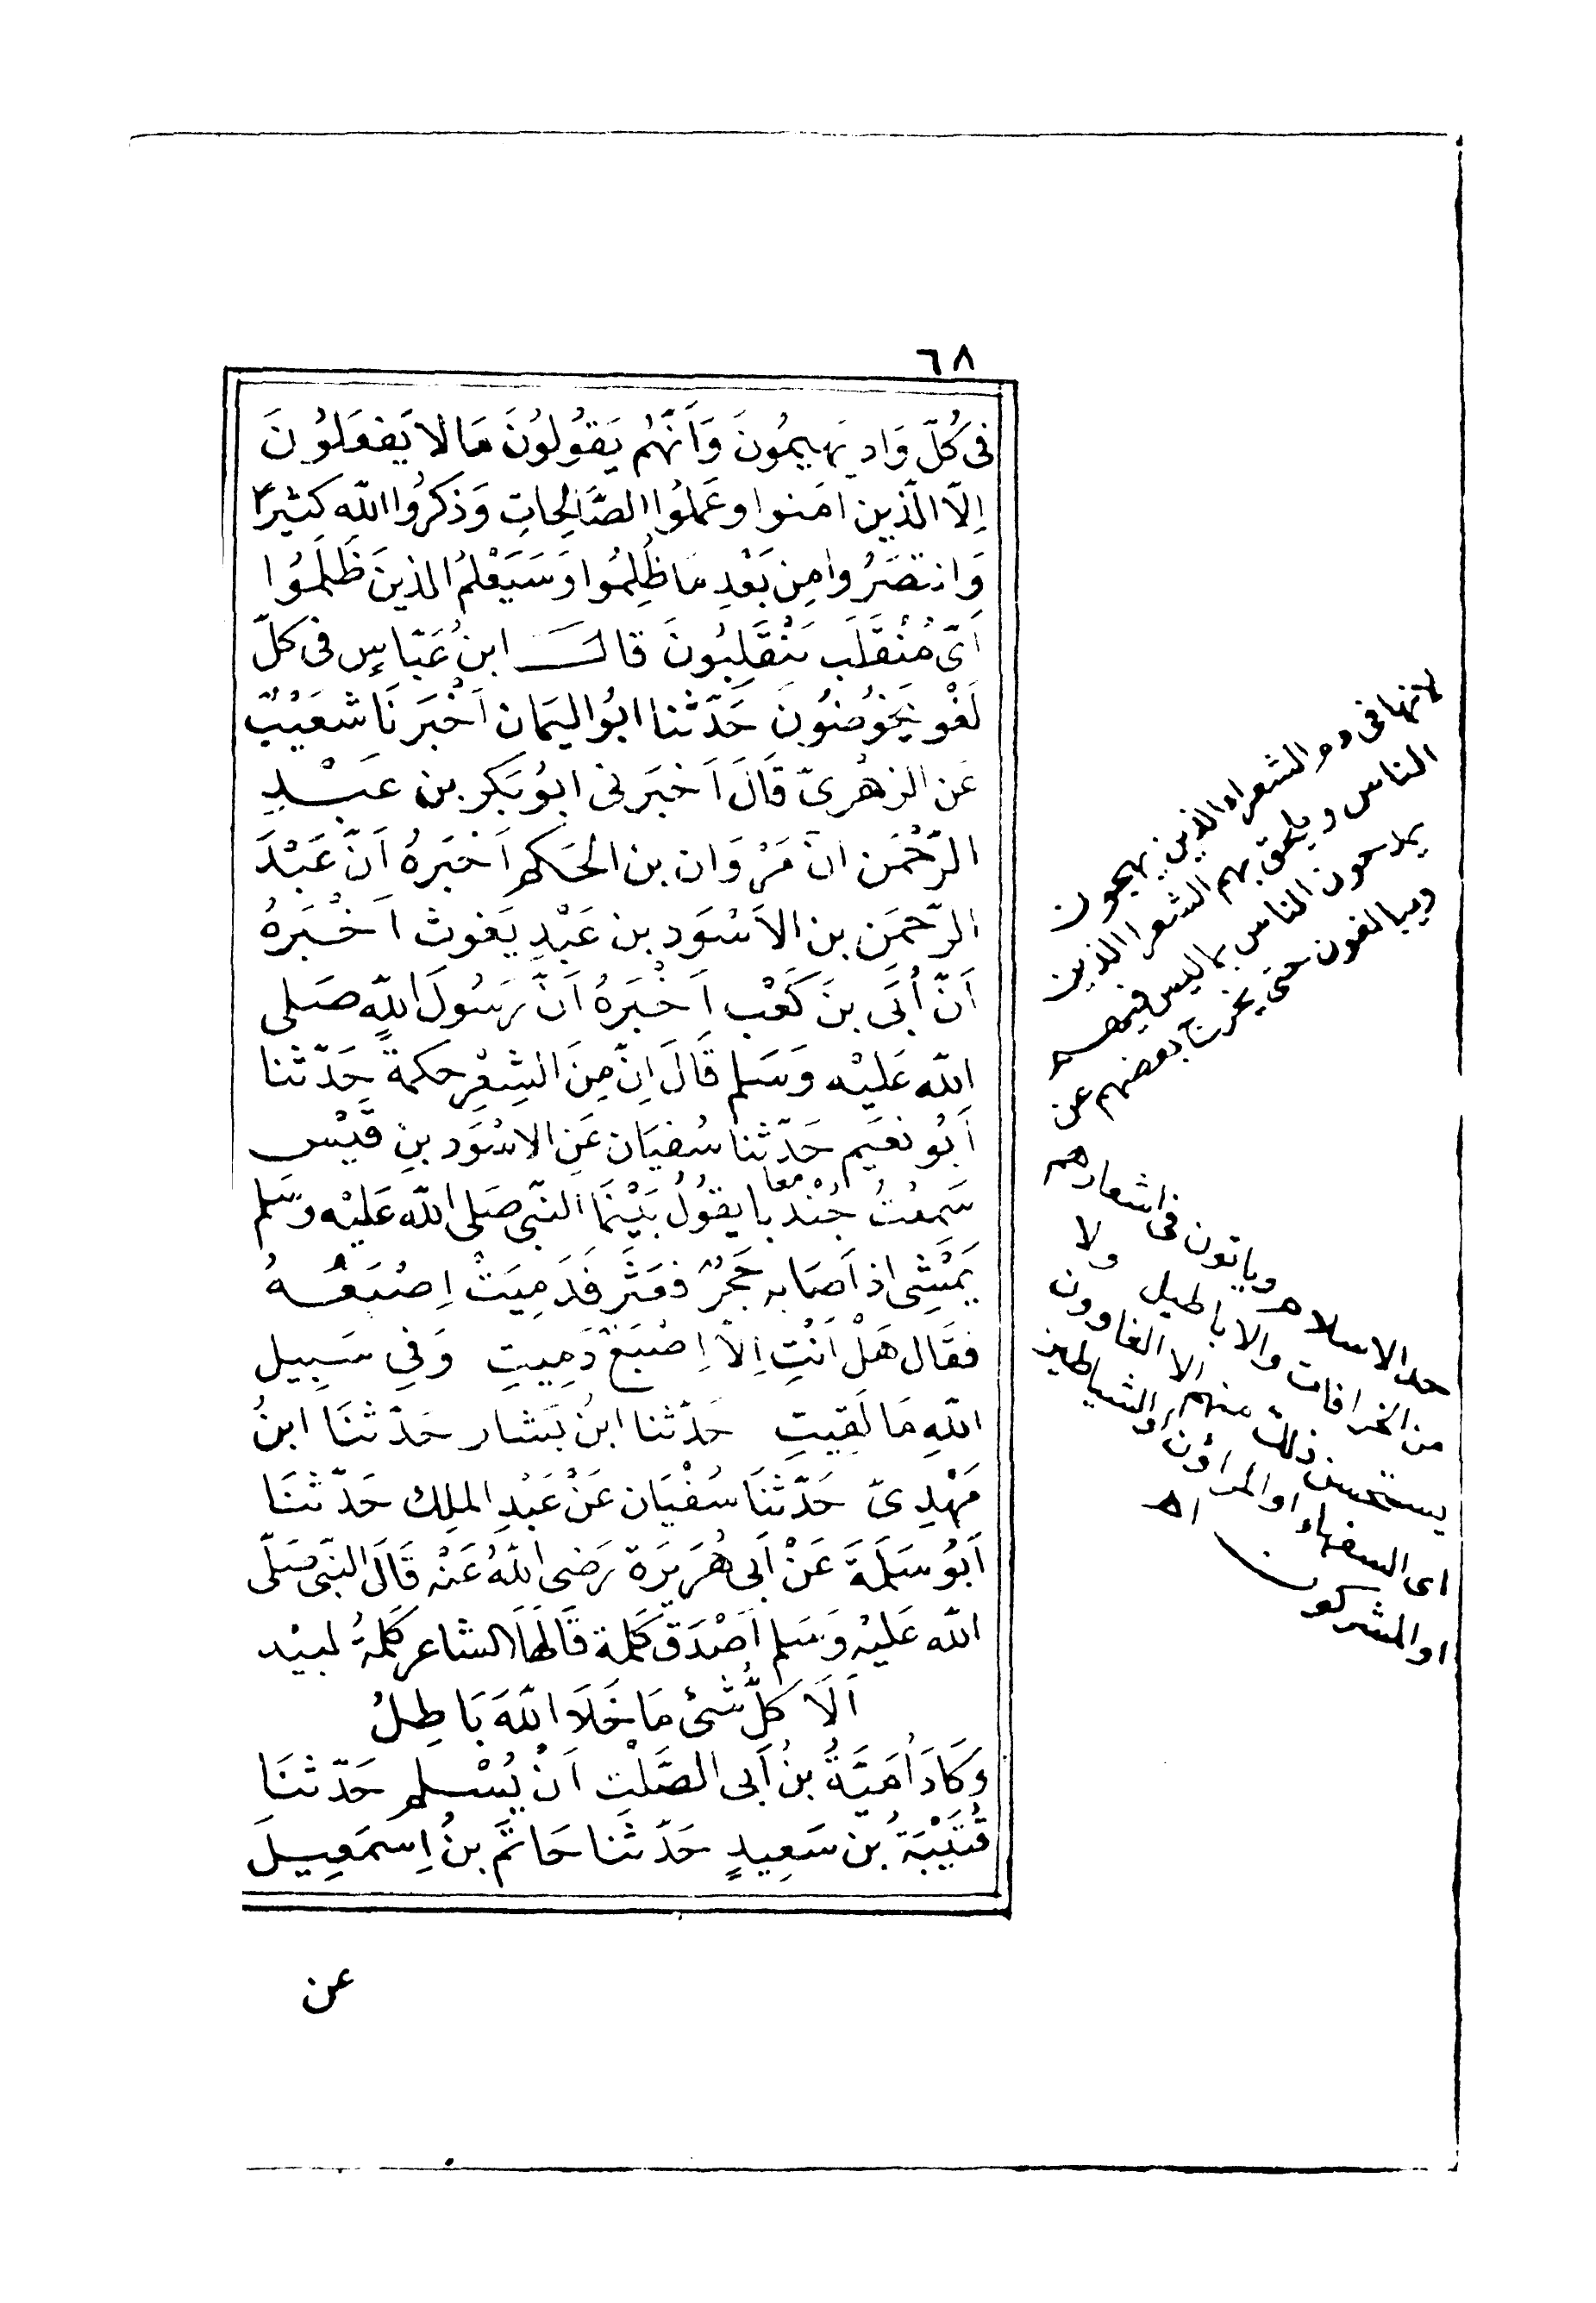 ٦٨
فى كُلّ وَادٍ يَهيمُونَ وَأَنَّهُم يَقُولُونَ مَالا يَفعَلوُنَ
اِلاّ الذّين امَنوا وعَملوُا الصَّالِحاتِ وَذكرُوا اللّه كثيرًا
وَانتصَرُوا مِن بَعْدِ مَا ظُلِمُوا وَسَيَعْلمُ الذينَ ظَلَمُوا
أىّ مُنْقَلَب يَنْقَلِبُونَ قالَ ابنُ عَبّاسٍ فى كلّ
لَغْو يَخوُضوُنَ حَدّثنا ابُو اليَمان أخْبَرنَا شعَيْبٌ
عَن الزهْرىّ قَالَ أخبَرنى ابوُ بَكر بن عَبْدِ
الرَّحْمَن انّ مَرْوَان بن الحَكم أخبَرهُ أنّ عَبْدَ
الرّحمَن بن الأسْوَد بن عَبْدِ يَغوث أخْبَرهُ
أنّ أُبَىّ بنَ كَعْب أخْبَرَهُ أنّ رَسُولَ اللّهِ صَلى
اللّه عَليْه وَسَلم قَالَ إنّ مِنَ الشِعْرِ حكمةً حَدّثنا
أبُو نعَيم حَدّثنا سُفيَان عَن الاسْوَد بنِ قَيْسٍ
سَمِعْتُ جُنْدبا معا يقوُلُ بَيْنَمَا النّبى صَلى اللّه عَليْه وَسَلم
يَمْشِى اذ أصَابه حَجَرٌ فعَثَر فَدَمِيَتْ اِصْبَعُهُ
فقَال هَلْ أنْتِ إلاّ اِصْبَعٌ دَمِيتِ وَفي سَبِيل
اللّهِ مَا لَقِيتِ حَدّثنا ابنُ بَشار حَدّثنَا ابنُ
مَهْدِىّ حَدّثنَا سُفْيَان عَنْ عَبْدِ الملِك حَدّثنَا
أبُو سَلمَةَ عَنْ أبى هُرَيرَة رَضى اللّهُ عَنْه قَالَ النّبى صَلّى
اللّه عَليْه وَسَلم أصْدَق كَلمة قَالَهَا الشاعر كَلمةُ لبيْد
ألَا كلُّ شىْ مَا خَلَا اللّهَ بَاطِلُ
وَكَادَ أُمَيَّةُ بنُ أبى الصَّلْت أنْ يُسْلم حَدّثنَا
قُتَيْبَةُ بن سَعِيدٍ حَدّثنا حَاتمُ بنُ اِسمَعِيلَ
عن
لانها فى ذم الشعراء الذين يهجون
الناس ويلحق بهم الشعرا الذين
يمدحون الناس بما ليس فيهم
ويبالغون حتى يخرج بعضهم عن
حد الاسلام ويأتون فى اشعارهم
من الخرافات والاباطيل ولا
يستحسن ذلك منهم الا الغاوون
اى السفهاء او المراؤن او الشياطين
او المشركون اه